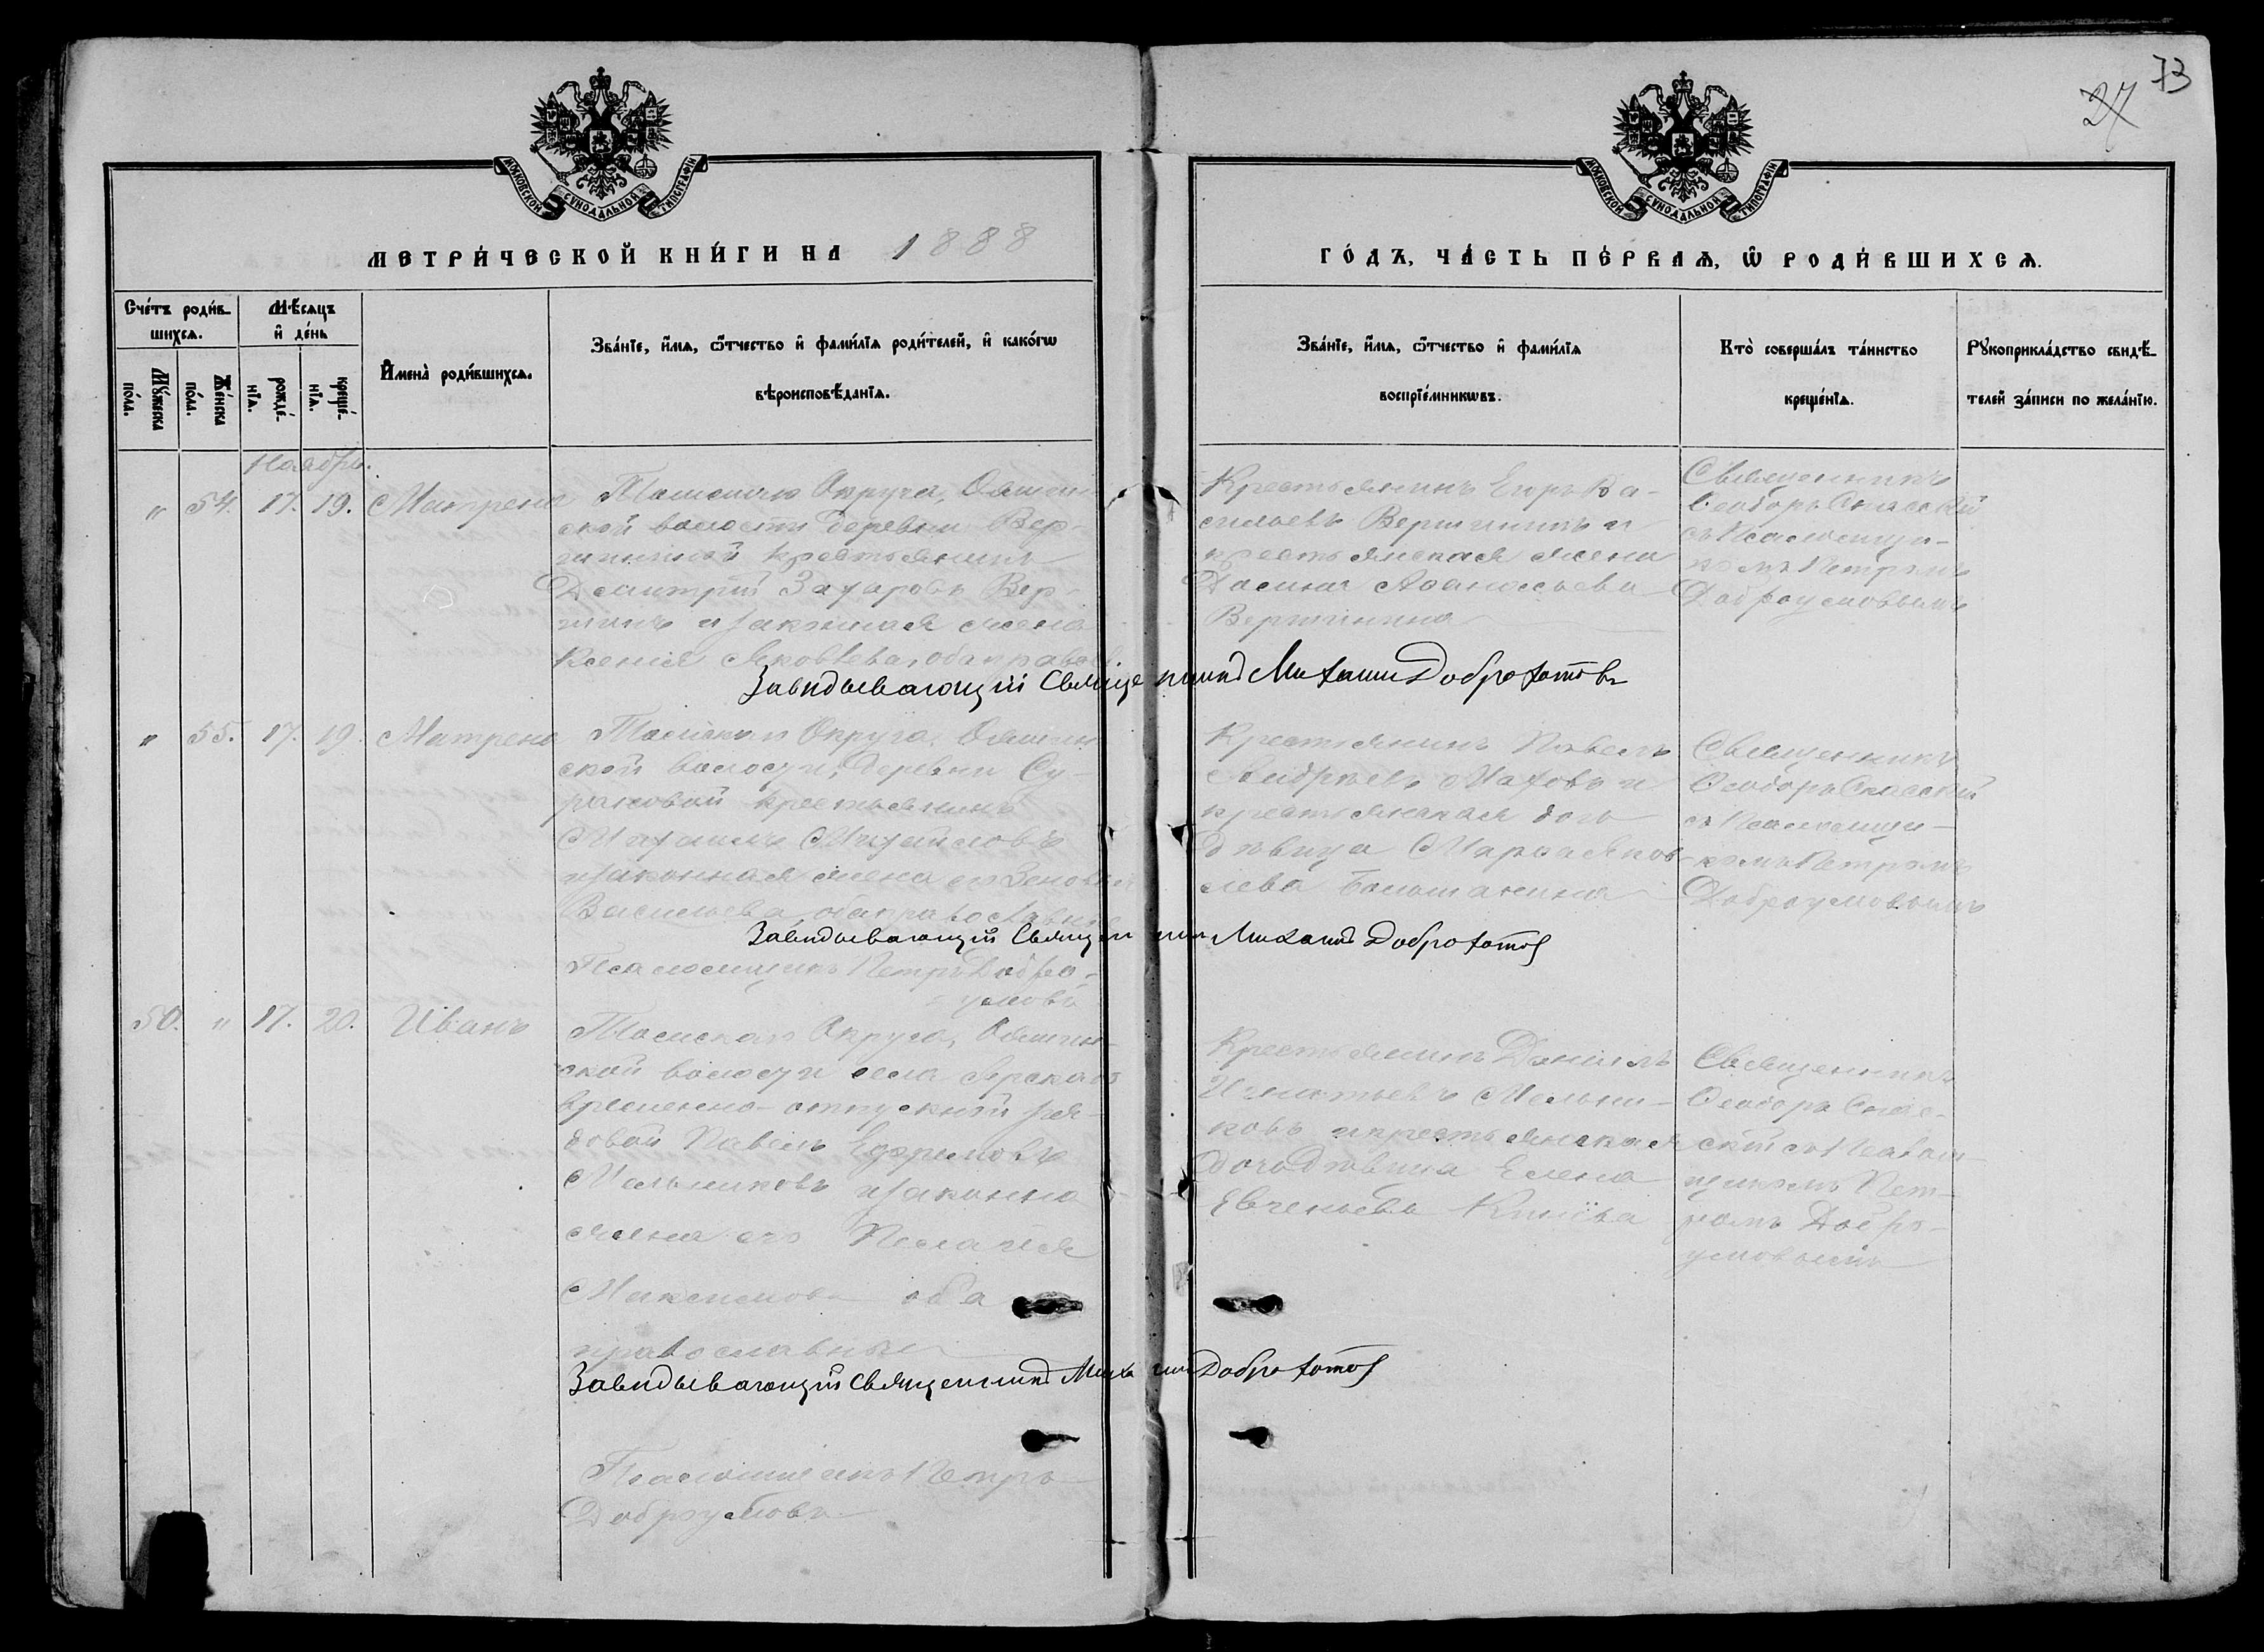 73
27
МОСКОВСКОЙ СѴНОДАЛЬНОЙ ТИПОГРАФІИ
МОСКОВСКОЙ СѴНОДАЛЬНОЙ ТИПОГРАФІИ
МЕТРИ́ЧЕСКОЙ КНИ́ГИ НА 1888
ГО́ДЪ, ЧА́СТЬ ПЕ́РВАѦ, Ѡ РОДИ́ВШИХСѦ.
Сче́тъ роди́в-
шихсѧ.
Мꙋ́жеска
по́ла.
Же́нска
по́ла.
Мѣ́сѧцъ
и҆ де́нь
рожде́-
нїѧ.
креще́-
нїѧ.
И҆мена̀ роди́вшихсѧ.
Зва́нїе, и҆́мѧ, ѻ҆́тчество и҆ фами́лїѧ роди́телей, и҆ како́гѡ
вѣроисповѣ́данїѧ.
Зва́нїе, и҆́мѧ, ѻ҆́тчество и҆ фами́лїѧ
воспрїе́мникѡвъ.
Кто̀ соверша́лъ та́инство
креще́нїѧ.
Рꙋкоприкла́дство свидѣ́-
телей за́писи по жела́нїю.
Ноябрь.
" 54. 17. 19. Матрена
Томскаго Округа, Ояшин-
ской волости деревни Вер-
шининой крестьянинъ
Дмитрий Захаровъ Вер-
шинъ и законная жена
Ксенія Яковлева, оба правосл.
Крестьянинъ Егоръ Ва-
сильевъ Вершининъ и
крестьянская жена
Афанасьева
Вершинина
Священникъ
Ѳеодоръ Спасскій
съ Псаломщи-
комъ Петромъ
Доброумовымъ
Завидывающий Священникъ Михаилъ Доброхотовъ
" 55. 17. 19. Матрена
Томскаго Округа, Ояшин-
ской волости, деревни Су-
рановой крестьянинъ
Михаилъ Михайловъ
и законная жена его Зеновия
Васильева, оба православные
Крестьянинъ Павелъ
Андреевъ Маховъ и
крестьянская дочь
дѣвица Марѳа Яков-
лева
Священникъ
Ѳеодоръ Спасский
съ Псаломщи-
комъ Петромъ
Доброумовымъ
Завидывающий Священникъ Михаилъ Доброхотов
Псаломщикъ Петръ Добро-
умовъ
50. " 17. 20. Иванъ
Томскаго Округа, Ояшин-
ской волости села Ярскаго
временно-отпускной ря-
довой Павелъ Ефремовъ
Мельниковъ и законна
жена его Пелагия
Максимова оба
православные
Крестьянинъ Даниилъ
Игнатьевъ Мельни-
ковъ и крестьянская
дочь дѣвица Елена
Евгеньева
Священникъ
Ѳеодоръ Спас-
ский съ Псалом-
щикомъ Пет-
ромъ Добро-
умовымъ
Завидывающий Священникъ Михаилъ Доброхотов
Псаломщикъ Петръ
Доброумовъ